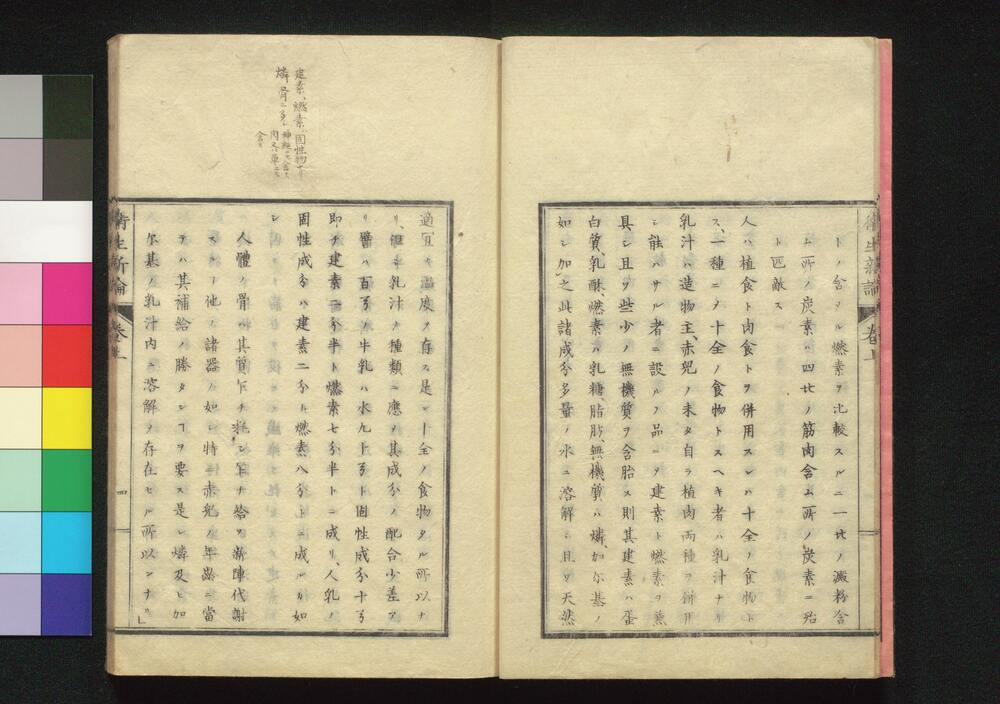 衛生新論 卷上
トノ含メル燃素ヲ比較スルニ一九ノ澱粉含
ム所ノ炭素ハ四九ノ筋肉含ム所ノ炭素ニ殆
ト匹敵ス
人ハ植食ト肉食トヲ併用スレハ十全ノ食物トス
ス、一種ニメ十全ノ食物トスヘキ者ハ乳汁ナリ
乳汁ハ造物主、赤兒ノ未タ自ラ植肉両種ヲ併用
シ能ハサル者ニ設ルノ品ニメ建素ト燃素ヲ兼
具シ且ツ些少ノ無機質ヲ含胎ス則其建素ハ蛋
白質、乳酥、燃素ハ乳糖、脂肪、無機質ハ燐、加尓基ノ
如シ加之此諸成分多量ノ水ニ溶解シ且ツ天然
適宜ノ温度ヲ有ス是レ十全ノ食物タル所以ナ
リ、但シ乳汁ノ種類ニ應メ其成分ノ配合少差ア
リ譬ハ百分ノ牛乳ハ水九十分ト固性成分十分
即チ建素二分半ト燃素七分半トニ成リ、人乳ノ
固性成分ハ建素二分ト燃素八分トニ成ルカ如
シ
人體ノ骨ハ其質乍チ耗シ乍チ給メ新陳代謝
スル丨他ノ諸器ノ如シ特ニ赤兒ノ年齢ニ當
テハ其補給ノ勝タンヿヲ要ス是レ燐及ヒ加
尓基ノ乳汁内ニ溶解メ存在セル所以ンナリ」
衛生新論 卷上 四
建素、燃素、固性物ナリ
燐 骨ニ多シ
神經ニモ含ム